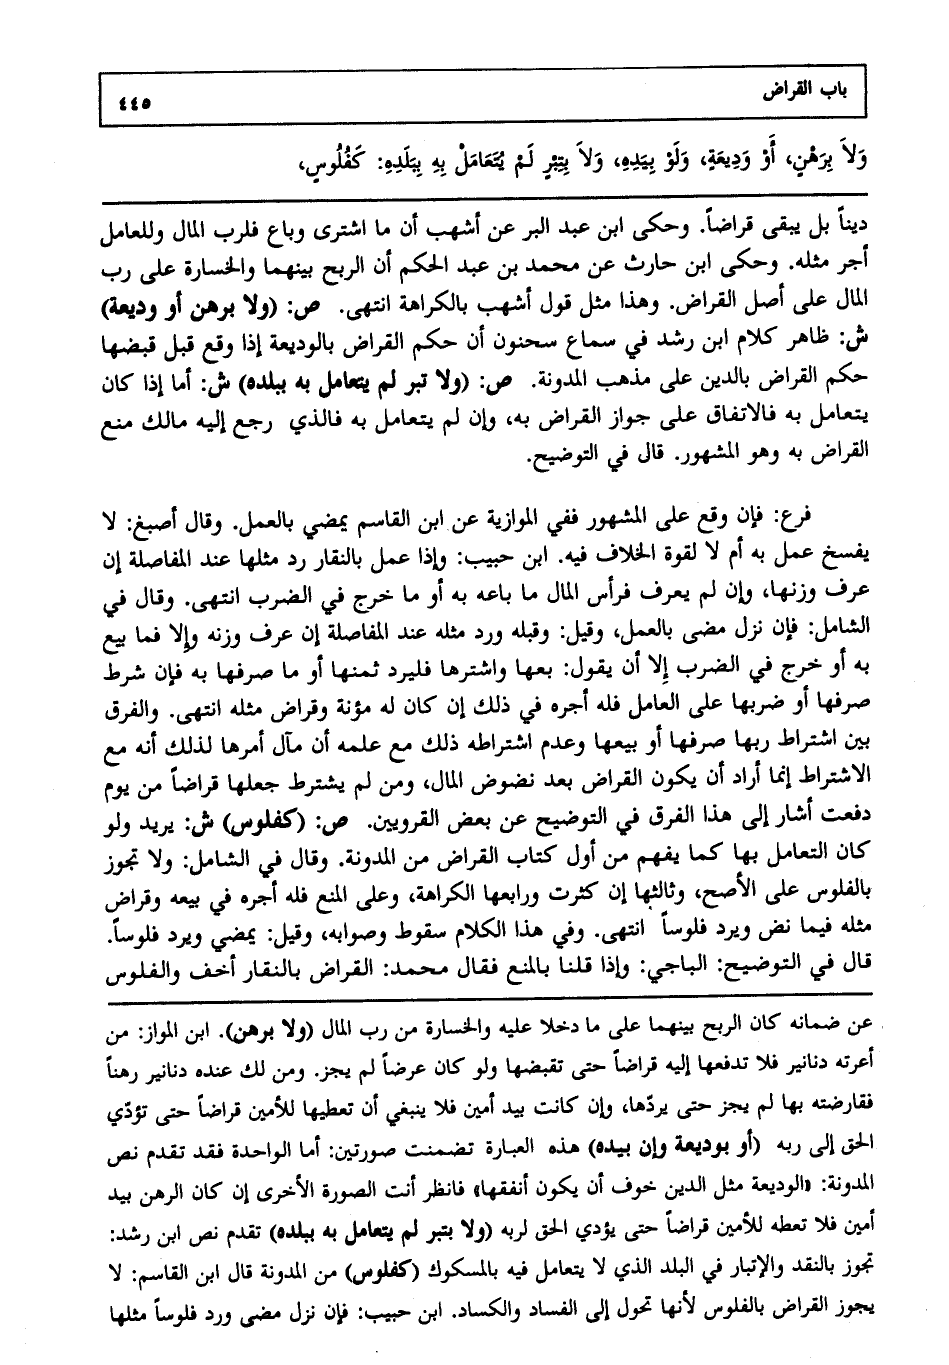 باب القراض
٤٤٥
وَلاَ بِرَهْنٍ، أَوْ وَدِيعَةٍ، وَلَوْ بِيَدِهِ، وَلاَ بِتِبْرٍ لَمْ يُتَعَامَلْ بِهِ بِبَلَدِهِ: كَفُلُوسٍ،
ديناً بل يبقى قراضاً. وحكى ابن عبد البر عن أشهب أن ما اشترى وباع فلرب المال وللعامل
أجر مثله. وحكى ابن حارث عن محمد بن عبد الحكم أن الربح بينهما والخسارة على رب
المال على أصل القراض. وهذا مثل قول أشهب بالكراهة انتهى. ص: (ولا برهن أو وديعة)
ش: ظاهر كلام ابن رشد في سماع سحنون أن حكم القراض بالوديعة إذا وقع قبل قبضها
حكم القراض بالدين على مذهب المدونة. ص: (ولا تبر لم يتعامل به ببلده) ش: أما إذا كان
يتعامل به فالاتفاق على جواز القراض به، وإن لم يتعامل به فالذي رجع إليه مالك منع
القراض به وهو المشهور. قال في التوضيح.
فرع: فإن وقع على المشهور ففي الموازية عن ابن القاسم يمضي بالعمل. وقال أصبغ: لا
يفسخ عمل به أم لا لقوة الخلاف فيه. ابن حبيب: وإذا عمل بالنقار رد مثلها عند المفاصلة إن
عرف وزنها، وإن لم يعرف فرأس المال ما باعه به أو ما خرج في الضرب انتهى. وقال في
الشامل: فإن نزل مضى بالعمل، وقيل: وقبله ورد مثله عند المفاصلة إن عرف وزنه وإلا فما بيع
به أو خرج في الضرب إلا أن يقول: بعها واشترها فليرد ثمنها أو ما صرفها به فإن شرط
صرفها أو ضربها على العامل فله أجره في ذلك إن كان له مؤنة وقراض مثله انتهى. والفرق
بين اشتراط ربها صرفها أو بيعها وعدم اشتراطه ذلك مع علمه أن مآل أمرها لذلك أنه مع
الاشتراط إنما أراد أن يكون القراض بعد نضوض المال، ومن لم يشترط جعلها قراضاً من يوم
دفعت أشار إلى هذا الفرق في التوضيح عن بعض القرويين. ص: (كفلوس) ش: يريد ولو
كان التعامل بها كما يفهم من أول كتاب القراض من المدونة. وقال في الشامل: ولا تجوز
بالفلوس على الأصح، وثالثها إن كثرت ورابعها الكراهة، وعلى المنع فله أجره في بيعه وقراض
مثله فيما نض ويرد فلوساً انتهى. وفي هذا الكلام سقوط وصوابه، وقيل: يمضي ويرد فلوساً.
قال في التوضيح: الباجي: وإذا قلنا بالمنع فقال محمد: القراض بالنقار أخف والفلوس
عن ضمانه كان الربح بينهما على ما دخلا عليه والخسارة من رب المال (ولا برهن). ابن المواز: من
أعرته دنانير فلا تدفعها إليه قراضاً حتى تقبضها ولو كان عرضاً لم يجز. ومن لك عنده دنانير رهناً
فقارضته بها لم يجز حتى يردّها، وإن كانت بيد أمين فلا ينبغي أن تعطيها للأمين قراضاً حتى تؤدّي
الحق إلى ربه (أو بوديعة وإن بيده) هذه العبارة تضمنت صورتين: أما الواحدة فقد تقدم نص
المدونة: «الوديعة مثل الدين خوف أن يكون أنفقها» فانظر أنت الصورة الأخرى إن كان الرهن بيد
أمين فلا تعطه للأمين قراضاً حتى يؤدي الحق لربه (ولا بتبر لم يتعامل به ببلده) تقدم نص ابن رشد:
تجوز بالنقد والإتبار في البلد الذي لا يتعامل فيه بالمسكوك (كفلوس) من المدونة قال ابن القاسم: لا
يجوز القراض بالفلوس لأنها تحول إلى الفساد والكساد. ابن حبيب: فإن نزل مضى ورد فلوساً مثلها